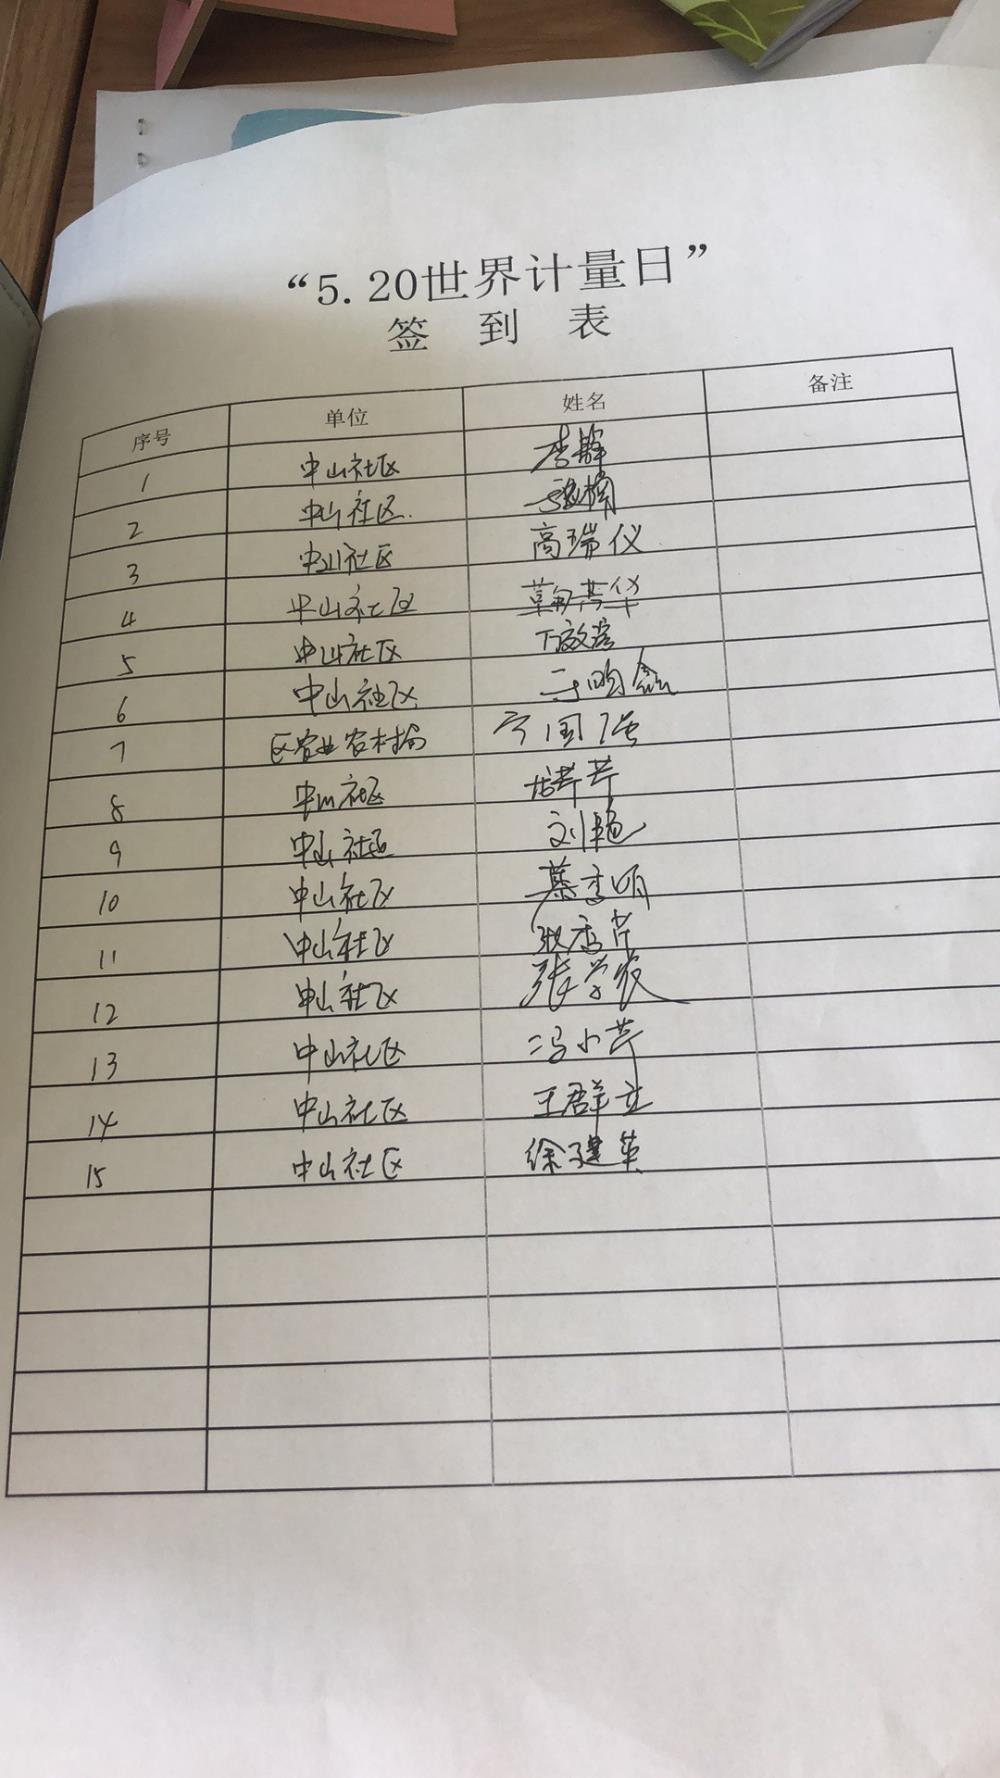 “5.20世界计量日”
签 到 表
序号 单位 姓名 备注
1 中山社区 李静
2 中山社区 张楠
3 中山社区 高瑞仪
4 中山社区 鞠芳华
5 中山社区
6 中山社区
7 区农业农村局 宁国强
8 中山社区
9 中山社区 刘艳
10 中山社区
11 中山社区
12 中山社区
13 中山社区 冯小芹
14 中山社区 王群立
15 中山社区 徐建英